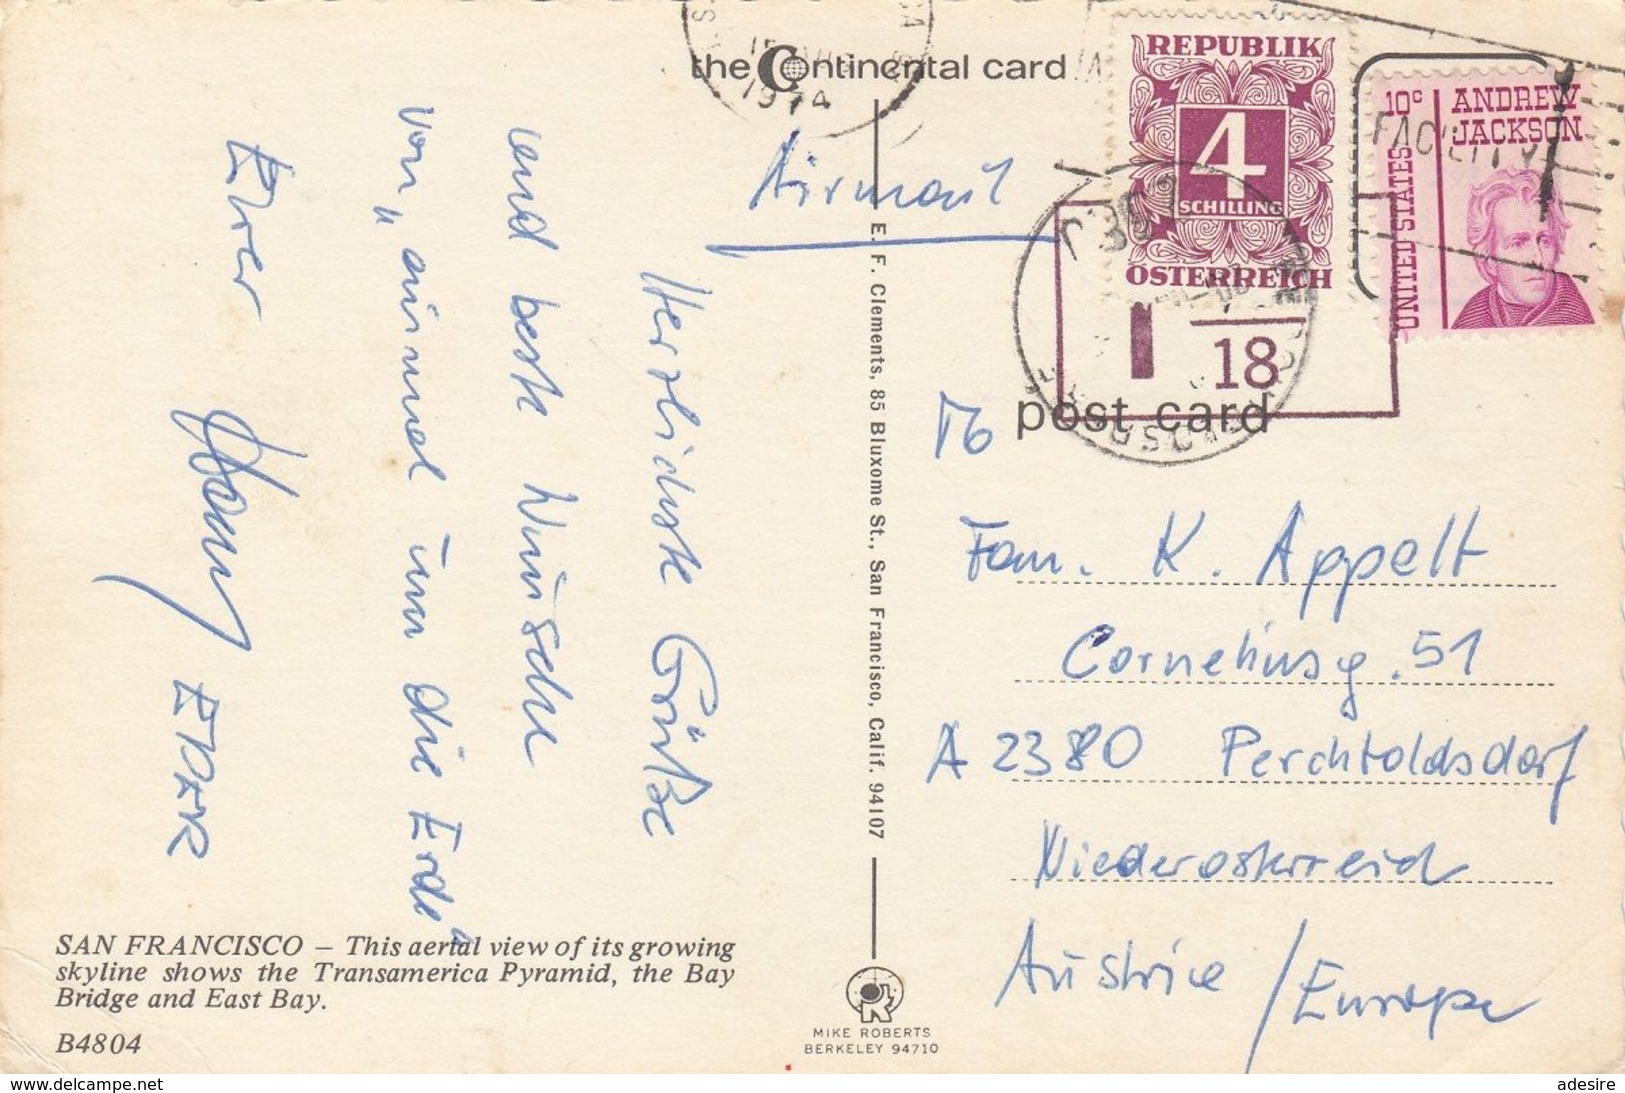 the Continental card
1974
REPUBLIK
4
SCHILLING
ÖSTERREICH
10c ANDREW
JACKSON
UNITED STATES
FACILITY
T 18
post card
Airmail
Herzlichste Grüße
und beste Wünsche
von „einmal um die Erde“
Euer
EDER
E. F. Clements, 85 Bluxome St., San Francisco, Calif. 94107
To
Fam. K. Appelt
Corneliusg. 51
A 2380 Perchtoldsdorf
Niederösterreich
Austria / Europe
SAN FRANCISCO – This aerial view of its growing
skyline shows the Transamerica Pyramid, the Bay
Bridge and East Bay.
B4804
MIKE ROBERTS
BERKELEY 94710
www.delcampe.net
adesire